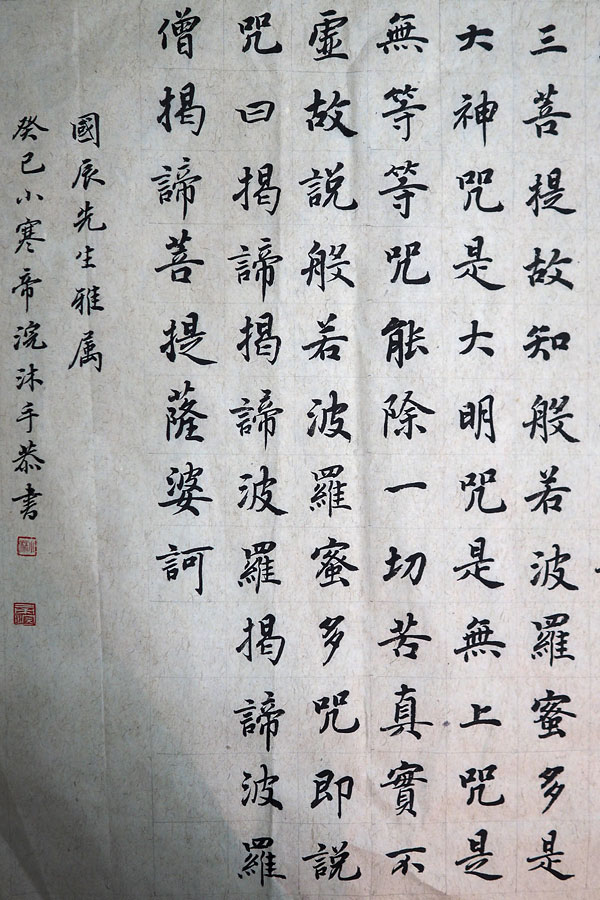 三菩提故知般若波羅蜜多是
大神咒是大明咒是無上咒是
無等等咒能除一切苦真實不
虛故說般若波羅蜜多咒即說
咒曰揭諦揭諦波羅揭諦波羅
僧揭諦菩提薩婆訶
國辰先生雅属
癸巳小寒帝浣沐手恭書